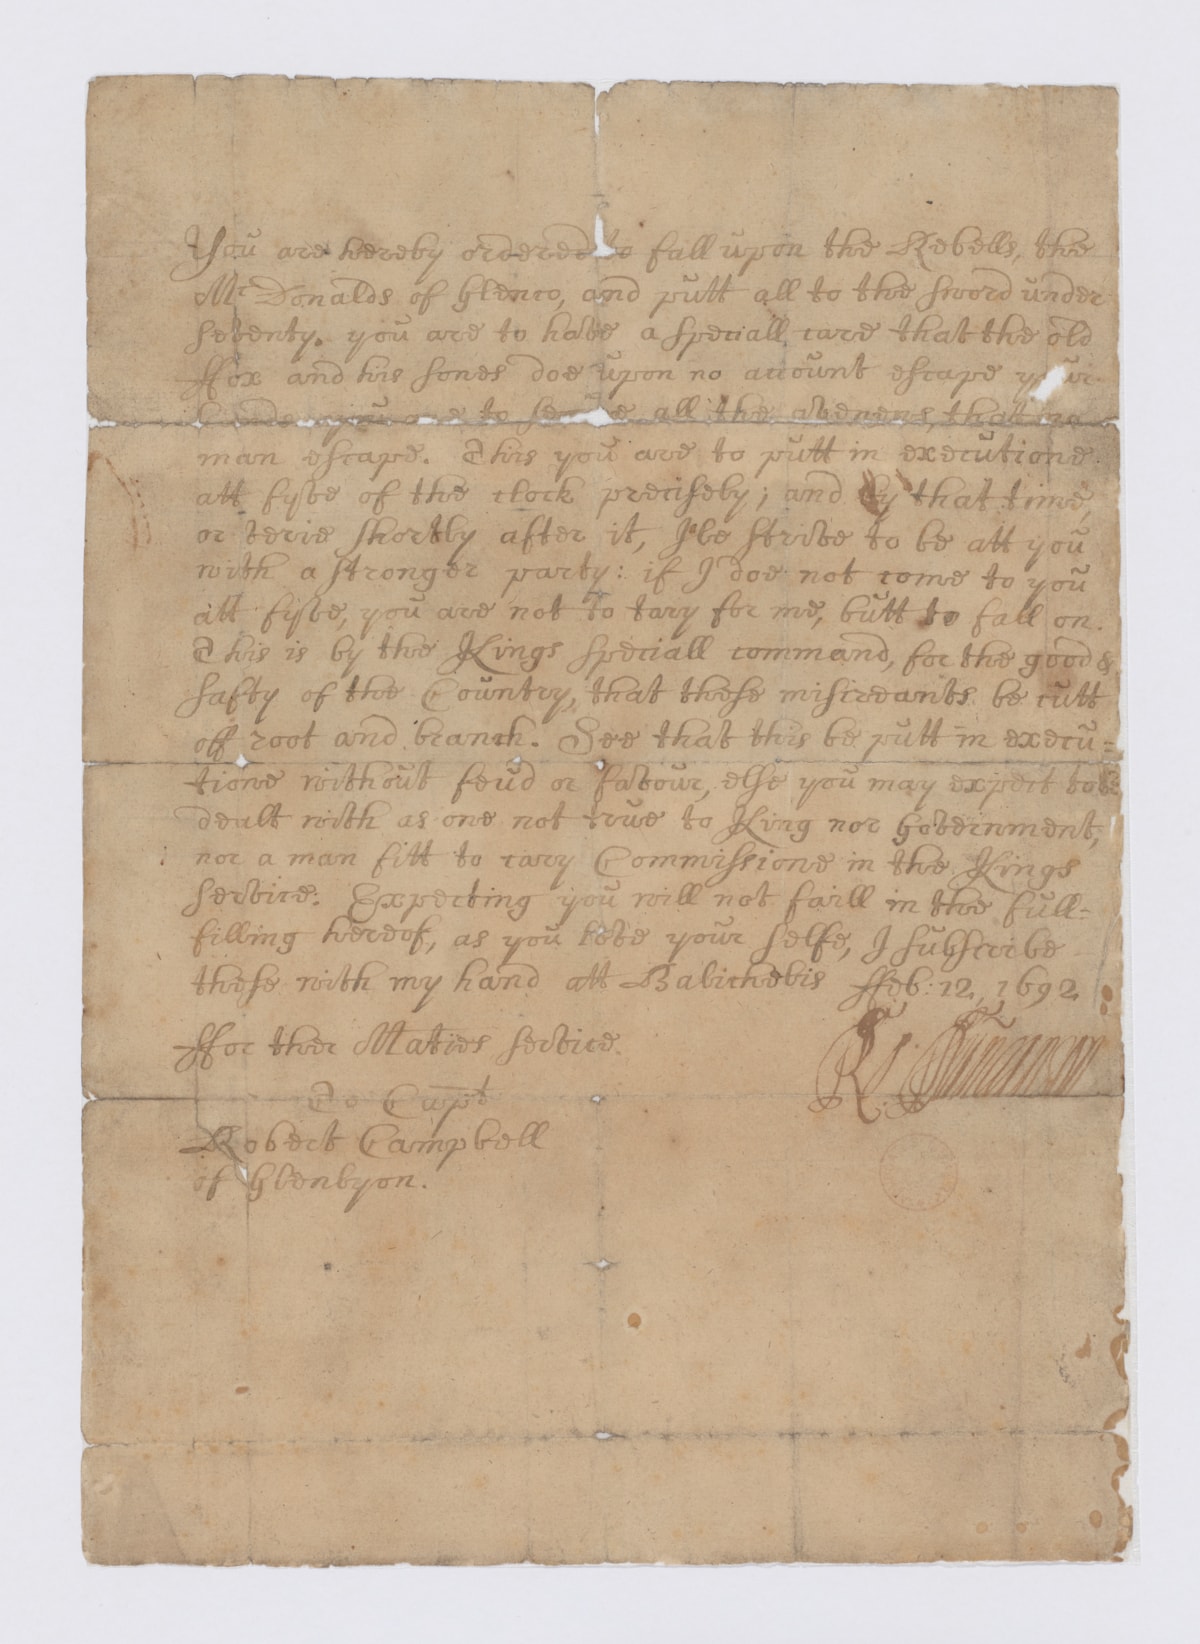 You are hereby ordered to fall upon the Rebells, the
Mc Donalds of Glenco, and putt all to the sword under
seventy. you are to have a speciall care that the old
ffox and his sones doe upon no account escape your
hands, you are to secure all the avenens, that no
man escape. This you are to putt in executione
att fyve of the clock precisely; and by that time,
or verie shortly after it, I'le strive to be att you
with a stronger party: if I doe not come to you
att fyve, you are not to tary for me, butt to fall on.
This is by the Kings speciall command, for the good &
safty of the Country, that these miscreants be cutt
off root and branch. See that this be putt in execu=
tione without feud or favour, else you may expect to be
dealt with as one not true to King nor Government,
nor a man fitt to cary Commissione in the Kings
service. Expecting you will not faill in the full=
filling hereof, as you love your selfe, I subscribe
these with my hand att Balicholis ffeb: 12, 1692
ffor ther Maties service
R. Duncanson
To Capt
Robert Campbell
of Glenlyon.